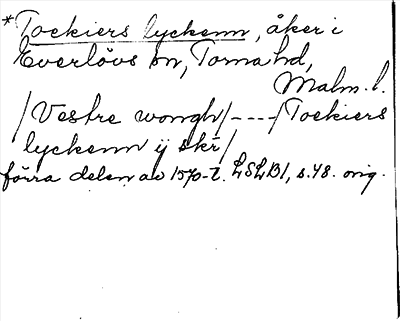 *Toekiers lyckenn, åker i
Everlövs sn, Torna hd,
Malm. l.
/Vestre wongh/----/Toekiers
lyckenn ij skr/
förra delen av 1570-t. LSLB1, s. 48. orig.